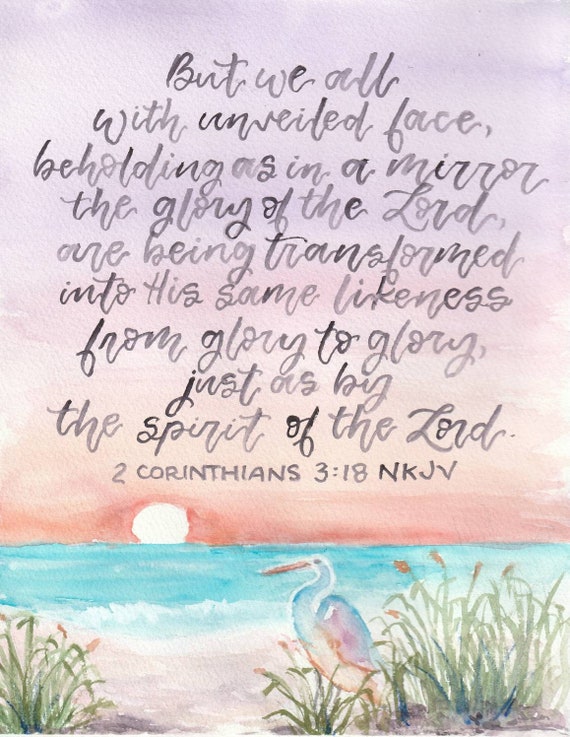 But we all
with unveiled face,
beholding as in a mirror
the glory of the Lord,
are being transformed
into His same likeness
from glory to glory,
just as by
the spirit of the Lord.
2 CORINTHIANS 3:18 NKJV